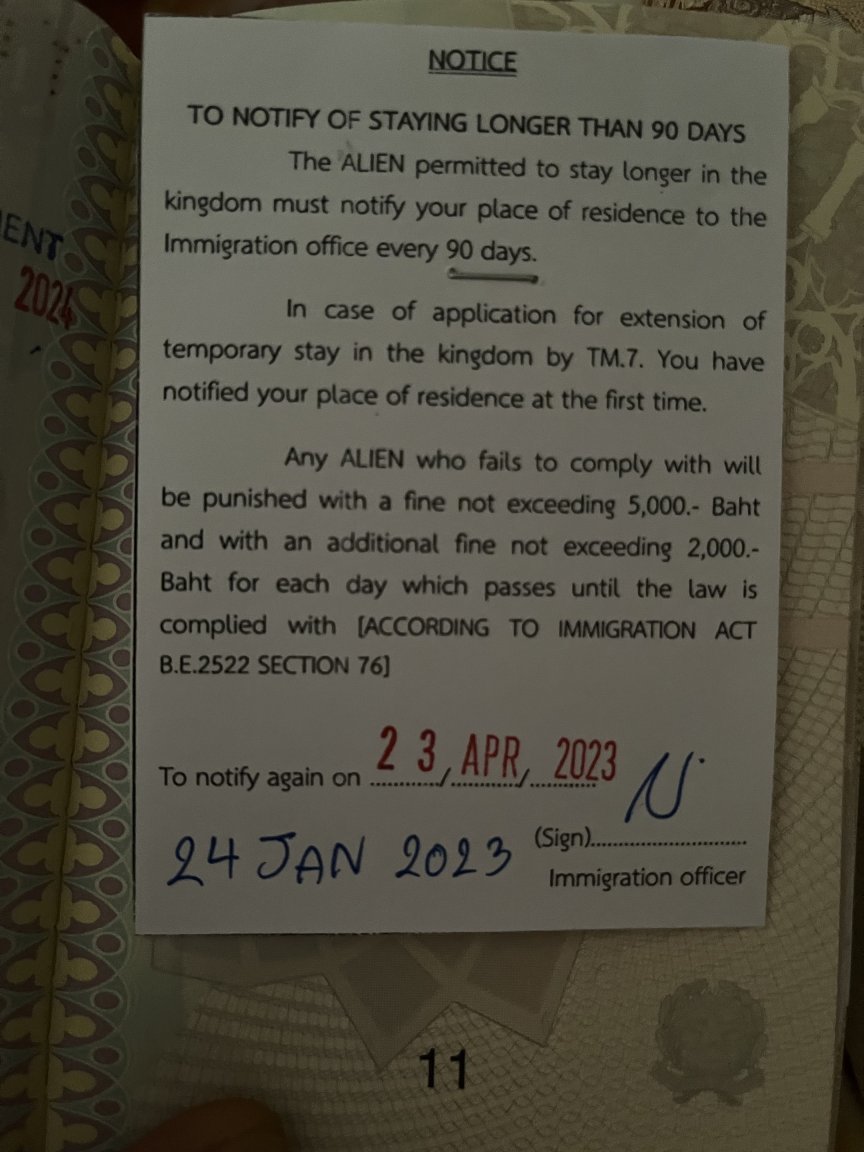 NOTICE
TO NOTIFY OF STAYING LONGER THAN 90 DAYS
The ALIEN permitted to stay longer in the
kingdom must notify your place of residence to the
Immigration office every 90 days.
In case of application for extension of
temporary stay in the kingdom by TM.7. You have
notified your place of residence at the first time.
Any ALIEN who fails to comply with will
be punished with a fine not exceeding 5,000.- Baht
and with an additional fine not exceeding 2,000.-
Baht for each day which passes until the law is
complied with [ACCORDING TO IMMIGRATION ACT
B.E.2522 SECTION 76]
To notify again on 23/APR/2023
24 JAN 2023
(Sign)..............................
Immigration officer
11
ENT
2024